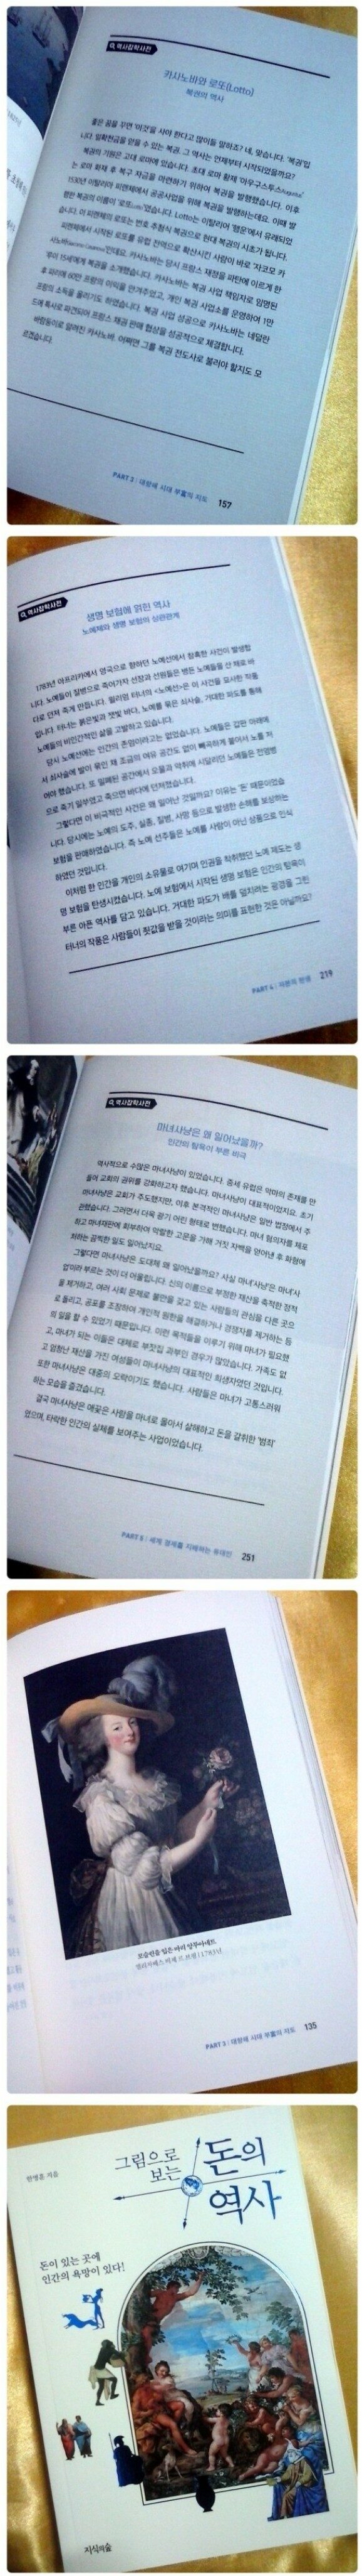 역사잡학사전
카사노바와 로또(Lotto)
복권의 역사
좋은 꿈을 꾸면 '이것'을 사야 한다고 많이들 말하죠? 네, 맞습니다. '복권'입
니다. 일확천금을 얻을 수 있는 복권. 그 역사는 언제부터 시작되었을까요?
복권의 기원은 고대 로마에 있습니다. 초대 로마 황제 '아우구스투스Augustus'
는 로마 화재 후 복구 자금을 마련하기 위하여 복권을 발행했습니다. 이후
1530년 이탈리아 피렌체에서 공공사업을 위해 복권을 발행하는데요. 이때 발
행한 복권의 이름이 '로또Lotto'였습니다. Lotto는 이탈리아어 '행운'에서 유래되었
습니다. 이 피렌체의 로또는 번호 추첨식 복권으로 현대 복권의 시초가 됩니다.
피렌체에서 시작된 로또를 유럽 전역으로 확산시킨 사람이 바로 '자코모 카
사노바Giacomo Casanova'인데요. 카사노바는 당시 프랑스 재정을 파탄에 이르게 한
'루이 15세'에게 복권을 소개했습니다. 카사노바는 복권 사업 책임자로 임명된
후 파리에 60만 프랑의 이익을 안겨주었고, 개인 복권 사업소를 운영하여 1만
프랑의 소득을 올리기도 하였습니다. 복권 사업 성공으로 카사노바는 네덜란
드에 특사로 파견되어 프랑스 채권 판매 협상을 성공적으로 체결합니다.
바람둥이로 알려진 카사노바. 어쩌면 그를 복권 전도사로 불러야 할지도 모
르겠습니다.
PART 3 | 대항해 시대 부富의 지도 157
역사잡학사전
생명 보험에 얽힌 역사
노예제와 생명 보험의 상관관계
1783년 아프리카에서 영국으로 향하던 노예선에서 참혹한 사건이 발생합
니다. 노예들이 질병으로 죽어가자 선장과 선원들은 병든 노예들을 산 채로 바
다로 던져 죽게 만듭니다. 윌리엄 터너의 <노예선>은 이 사건을 묘사한 작품
입니다. 터너는 붉은빛과 잿빛 바다, 노예를 묶은 쇠사슬, 거대한 파도를 통해
노예들의 비인간적인 삶을 고발하고 있습니다.
당시 노예선에는 인간의 존엄이라고는 없었습니다. 노예들은 갑판 아래에
서 쇠사슬에 발이 묶인 채 조금의 여유 공간도 없이 빽빽하게 붙어서 노를 저
어야 했습니다. 또 밀폐된 공간에서 오물과 악취에 시달리던 노예들은 전염병
으로 죽기 일쑤였고 죽으면 바다에 던져졌습니다.
그렇다면 이 비극적인 사건은 왜 일어난 것일까요? 이유는 '돈' 때문이었습
니다. 당시에는 노예의 도주, 실종, 질병, 사망 등으로 발생한 손해를 보상하는
보험을 판매하였습니다. 즉 노예 선주들은 노예를 사람이 아닌 상품으로 인식
하였던 것입니다.
이처럼 한 인간을 개인의 소유물로 여기며 인권을 착취했던 노예 제도는 생
명 보험을 탄생시켰습니다. 노예 보험에서 시작된 생명 보험은 인간의 탐욕이
부른 아픈 역사를 담고 있습니다. 거대한 파도가 배를 덮치려는 광경을 그린
터너의 작품은 사람들이 죗값을 받을 것이라는 의미를 표현한 것은 아닐까요?
PART 4 | 자본의 탄생 219
역사잡학사전
마녀사냥은 왜 일어났을까?
인간의 탐욕이 부른 비극
역사적으로 수많은 마녀사냥이 있었습니다. 중세 유럽은 악마의 존재를 만
들어 교회의 권위를 강화하고자 했습니다. 마녀사냥이 대표적이었지요. 초기
마녀사냥은 교회가 주도했지만, 이후 본격적인 마녀사냥은 일반 법정에서 주
관했습니다. 그러면서 더욱 광기 어린 형태로 변했습니다. 마녀 혐의자를 체포
하고 마녀재판에 회부하여 악랄한 고문을 가해 거짓 자백을 얻어낸 후 화형에
처하는 끔찍한 일도 일어났지요.
그렇다면 마녀사냥은 도대체 왜 일어났을까요? 사실 마녀'사냥'은 마녀'사
업'이라 부르는 것이 더 어울립니다. 신의 이름으로 부정한 재산을 축적한 정적
을 제거하고, 여러 사회 문제로 불만을 갖고 있는 사람들의 관심을 다른 곳으
로 돌리고, 공포를 조장하여 개인적 원한을 해결하거나 경쟁자를 제거하는 등
의 일을 할 수 있었기 때문입니다. 이런 목적들을 이루기 위해 마녀가 필요했
고, 마녀가 되는 이들은 대체로 부잣집 과부인 경우가 많았습니다. 가족도 없
고 엄청난 재산을 가진 여성들이 마녀사냥의 대표적인 희생자였던 것입니다.
또한 마녀사냥은 대중의 오락이기도 했습니다. 사람들은 마녀가 고통스러워
하는 모습을 즐겼습니다.
결국 마녀사냥은 애꿎은 사람을 마녀로 몰아서 살해하고 돈을 갈취한 '범죄'
였으며, 타락한 인간의 실체를 보여주는 사업이었습니다.
PART 5 | 세계 경제를 지배하는 유대인 251
모슬린을 입은 마리 앙투아네트
엘리자베스 비제 르 브룅 | 1783년
PART 3 | 대항해 시대 부富의 지도 135
한명훈 지음
그림으로
보는
돈의
역사
돈이 있는 곳에
인간의 욕망이 있다!
지식의숲